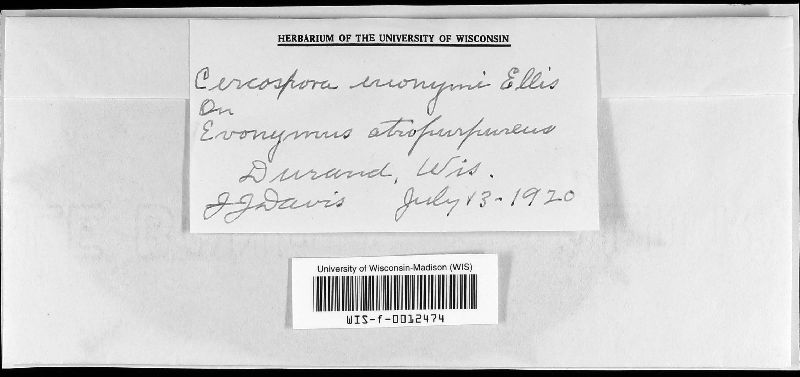 HERBARIUM OF THE UNIVERSITY OF WISCONSIN
Cercospora evonymi Ellis
On
Evonymus atropurpureus
Durand, Wis.
JJDavis July 13-1920
University of Wisconsin-Madison (WIS)
WIS-f-0012474